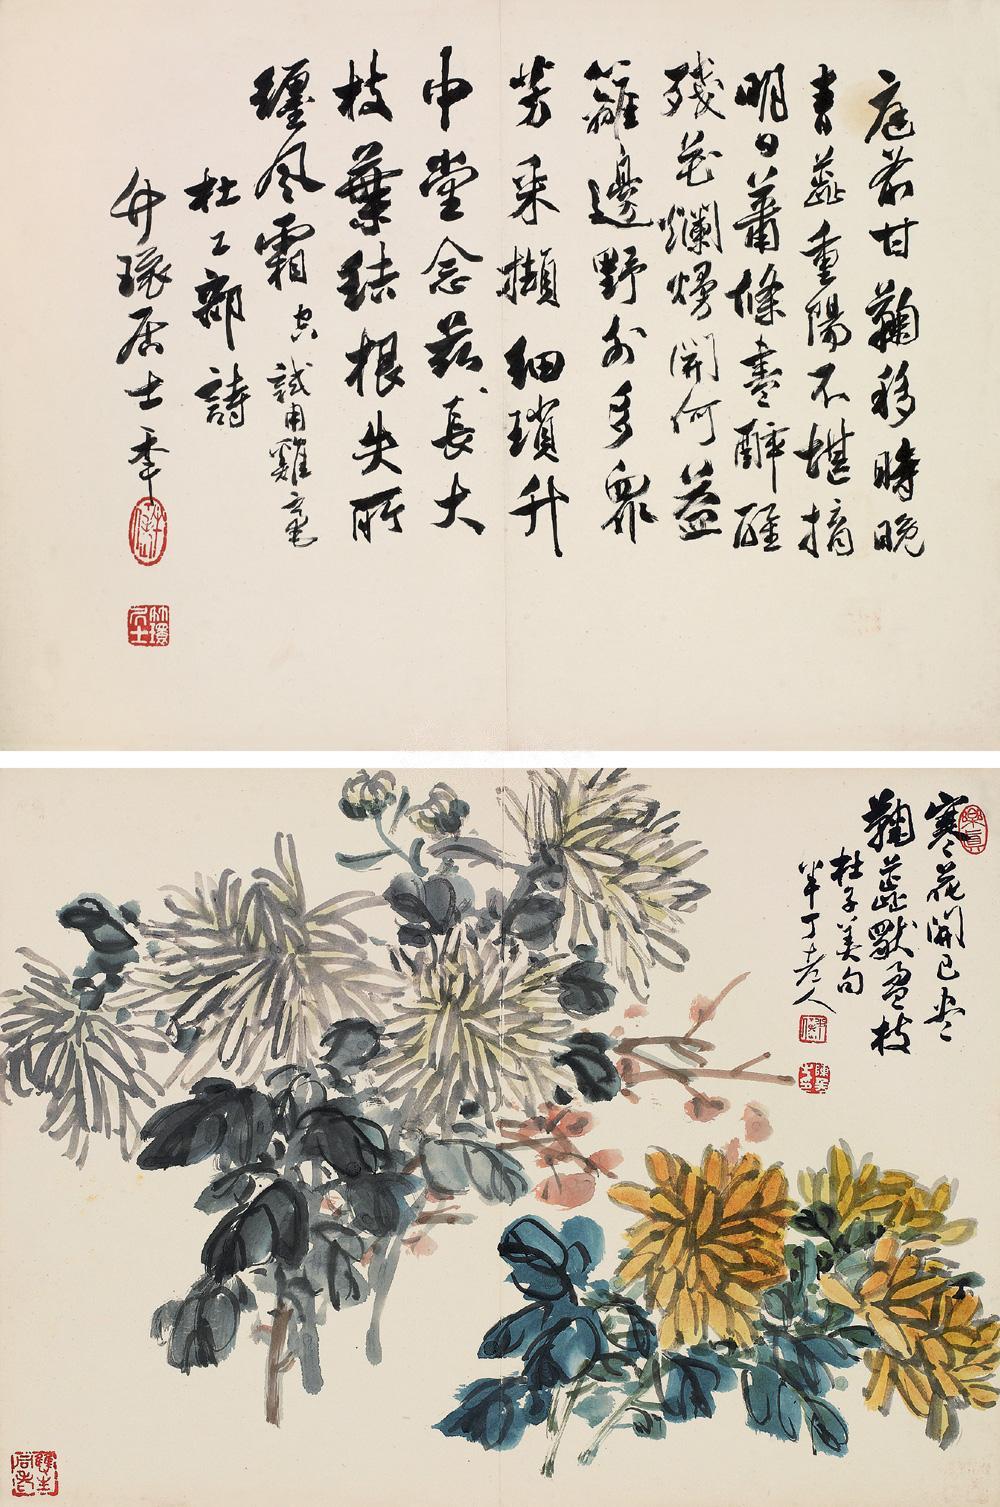 庭前甘鞠移時晚
青蕊重陽不堪摘
明日蕭條盡醉醒
殘花爛熳開何益
籬邊野外多衆
芳采擷細瑣升
中堂念茲長大
枝葉結根失所
纏風霜 試用雞毫
杜工部詩
竹環居士年
竹環居士
寒花開已尽
鞠蕊獨盈枝
杜子美句
半丁老人